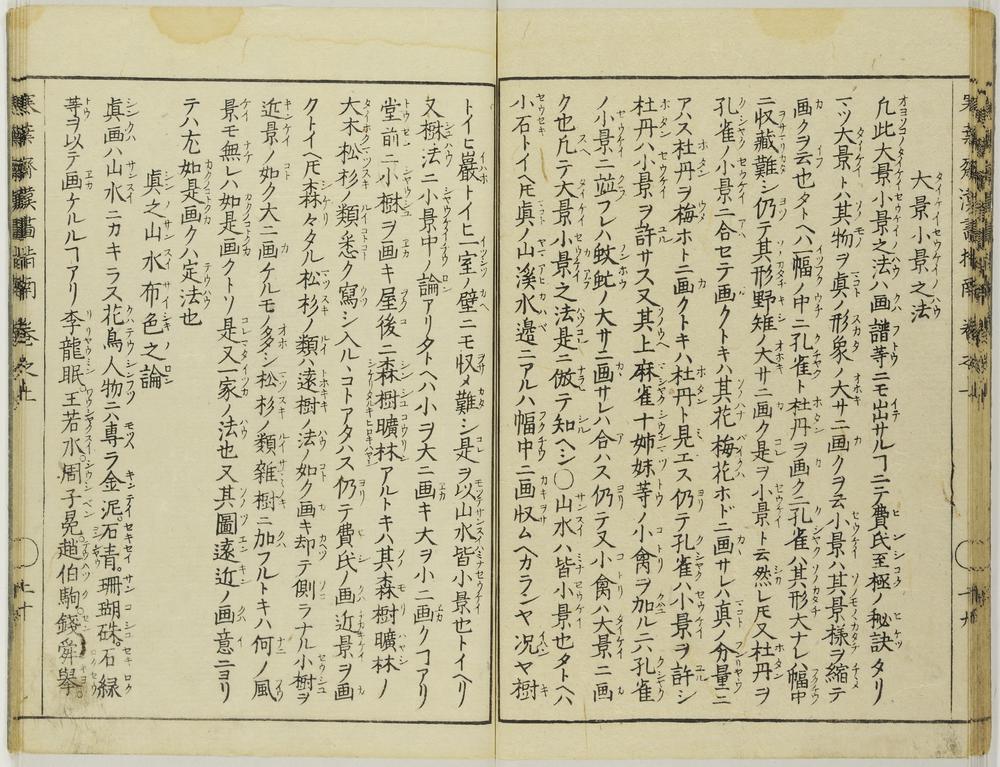 大景小景之法
凡此大景小景之法ハ画譜等ニモ出サルヿニテ費氏至極ノ秘訣タリ
一ツ大景トハ其物ヲ眞ノ形象ノ大サニ画クヲ云小景ハ其景様ヲ縮テ
画クヲ云也タトヘハ一幅ノ中ニ孔雀ト杜丹ヲ画クニ孔雀ハ其形大ナレハ幅中
ニ收藏難シ仍テ其形野雉ノ大サニ画ク是ヲ小景ト云然レ𪜈又杜丹ヲ
孔雀ノ小景ニ合セテ画クトキハ其花梅花ホドニ画サレハ真ノ分量ニ
アハス杜丹ヲ梅ホトニ画クトキハ杜丹ト見エス仍テ孔雀ハ小景ヲ許シ
杜丹ハ小景ヲ許サス又其上麻雀十姉妹等ノ小禽ヲ加ルニ孔雀
ノ小景ニ並フレハ蚊虻ノ大サニ画サレハ合ハス仍テ又小禽ハ大景ニ画
ク也凡テ大景小景之法是ニ倣テ知ヘシ〇山水ハ皆小景也タトヘハ
小石トイヘ𪜈眞ノ山溪水邊ニアルハ幅中ニ画収ムヘカランヤ况ヤ樹
トイヒ巖トイヒ一室ノ壁ニモ収メ難シ是ヲ以山水皆小景也トイヘリ
又樹法ニ小景中ノ論アリタトヘハ小ヲ大ニ画キ大ヲ小ニ画クヿアリ
堂前ニ小樹ヲ画キ屋後ニ森樹曠林アルトキハ其森樹曠林ノ
大木松杉ノ類悉ク寫シ入ル丶コトアタハス仍テ費氏ノ画近景ヲ画
クトイヘ𪜈森々タル松杉ノ類ハ遠樹ノ法ノ如ク画キ却テ側ラナル小樹ヲ
近景ノ如ク大ニ画ケルモノ多シ松杉ノ類雜樹ニ加フルトキハ何ノ風
景モ無レハ如是画クトソ是又一家ノ法也又其圖遠近ノ画意ニヨリ
テハ尤如是画クハ定法也
眞之山水布色之論
眞画ハ山水ニカキラス花鳥人物ニハ專ラ金泥。石青。珊瑚硃。石緑
等ヲ以テ画ケルヿアリ李龍眠。王若水。周子冕。趙伯駒。錢舜擧